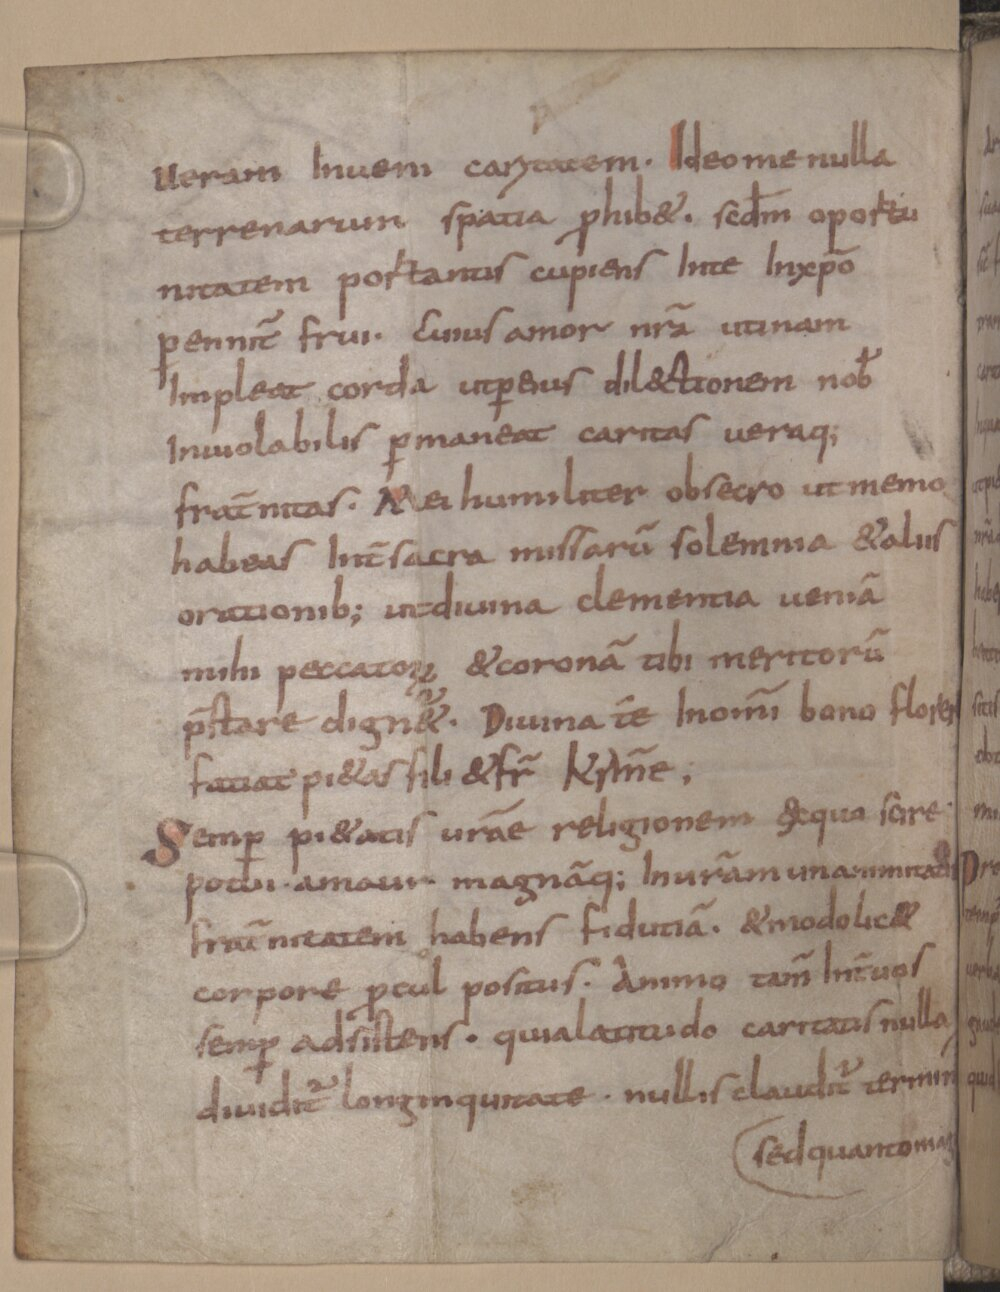 ueram Inueni caritatem. Ideo me nulla
terrenarum spatia ꝓhib&. sed m̄ oportu
nitatem portantis cupiens Inte Inxp̄o
pennit̄ frui. Cuius amor nr̄a utinam
Impleat corda utp̱ eius dil&ctionem nob̄
Inuiolabilis ꝑmaneat caritas ueraq;
frat̄nitas. Mei humiliter obsecro ut memo
habeas Int̄ sacra missarū solemnia &aliis
orationib; utdiuina clementia ueniā
mihi peccatoꝝ &coronā tibi meritorū
p̄stare dign&. Diuina te Inom̄i bono florer
faciat pi&as fili &fr̄
Semꝑ pi&atis urāe religionem exquo scire
potui. amaui. magnāq; Inurām unanimitatis
frat̄nitatem habens fidutiā. &modo lic&
corpore ꝓcul positus. Animo tam̄ Int̄ uos
semꝑ adsistens. quia latitudo caritatis nulla
diuidit̄ longinquitate. nullis claudit̄ termin
sed quanto mag